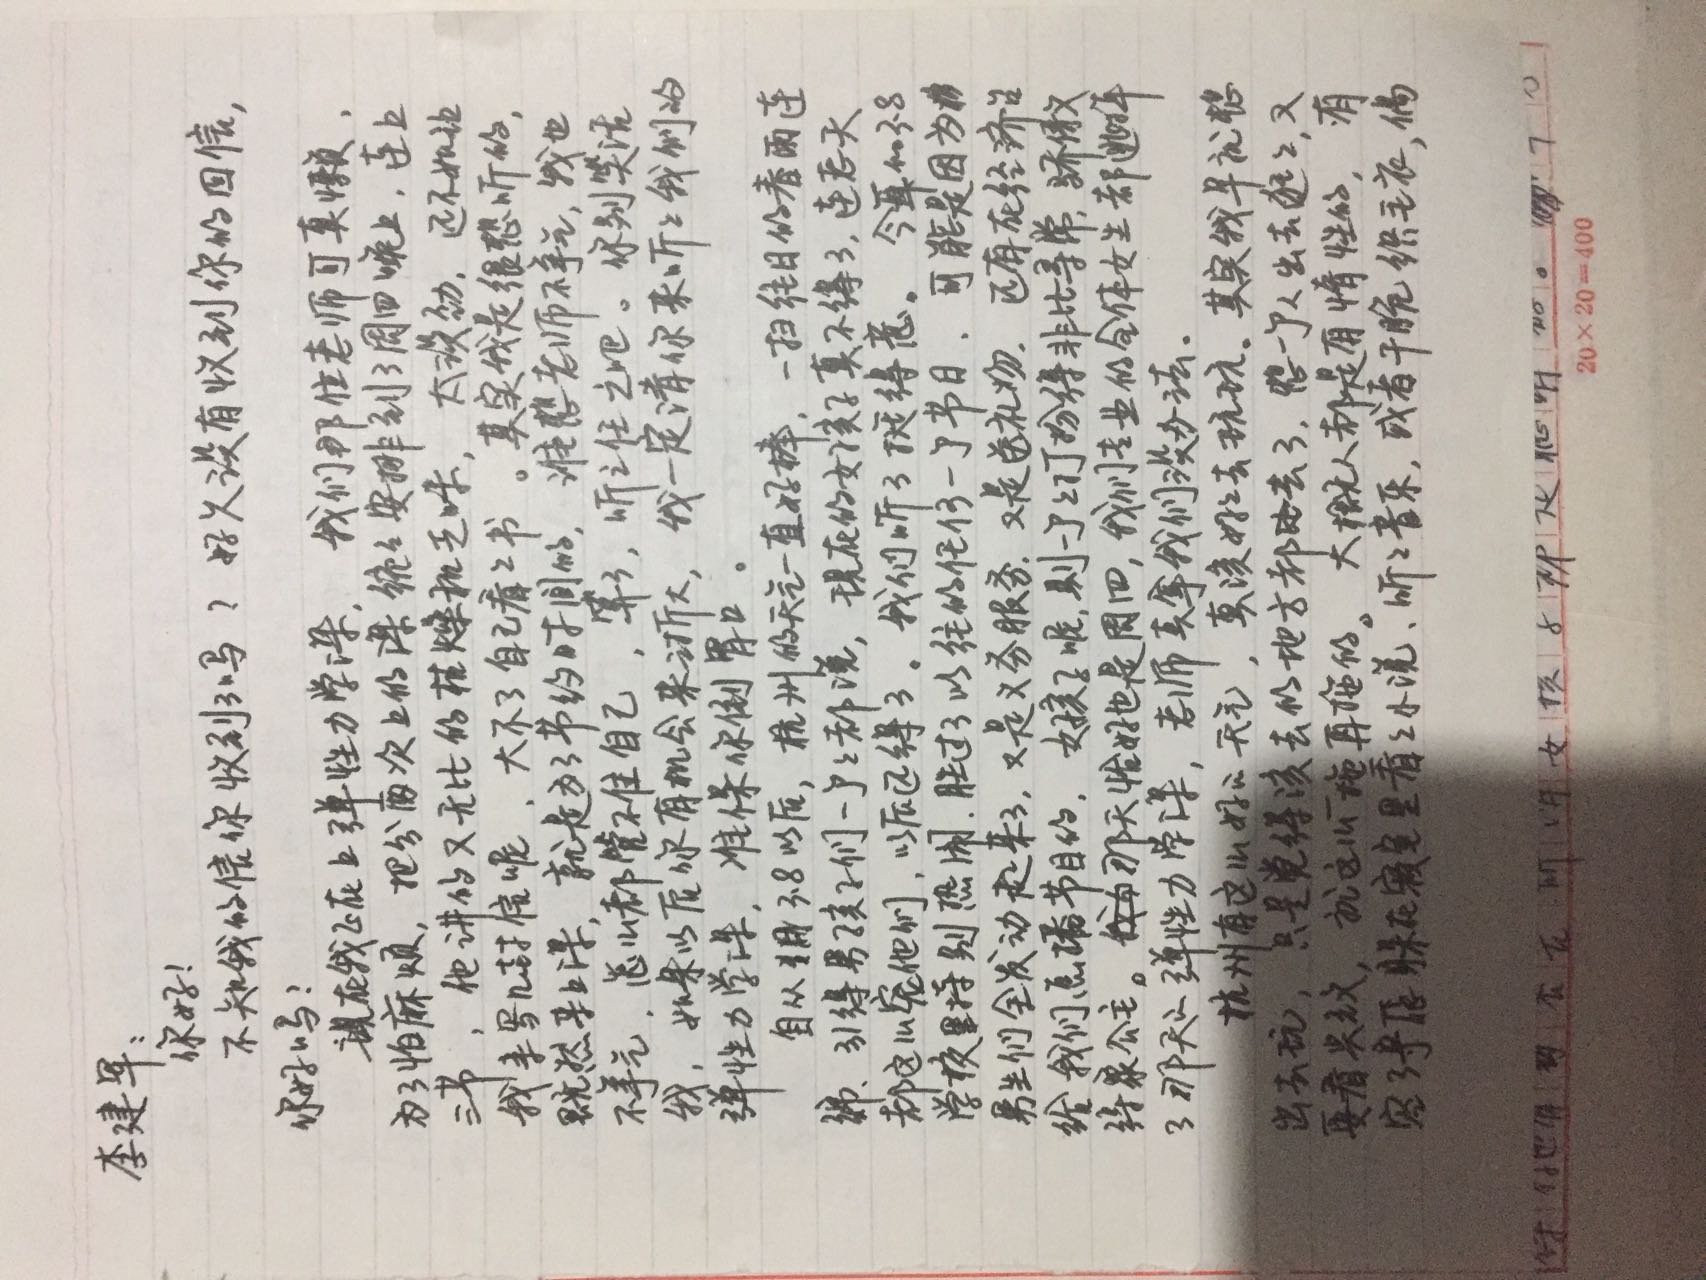 李建军：
你好！
不知我的信你收到了吗？好久没有收到你的回信，
你好吗？
现在我正在上弹性力学课，我们那位老师可真懒，
为了怕麻烦，把分两次上的课统统安排到了周四晚上，连上
三节，他讲的又无比的枯燥和乏味，太没劲，还不如让
我来写几封信呢，大不了自己看看书。其实我是很想听的，
既然来上课，就是为了节约时间的，谁想老师不争气，我也
不争气，怎么都管不住自己，算了，听之任之吧。你别笑话
我，如果以后你有机会来浙大，我一定请你来听听我们的
弹性力学课，准保你倒胃口。
自从 3.8以后，杭州的天气一直好棒，一扫往日的春雨连
绵、引得男孩子们一个个都说，现在的女孩子真不得了，连老天
都这么宠他们，以后还得了。我们听了挺得意。今年的3.8
学校里特别热闹，胜过了以往的任何一个节日，可能是因为
男生们全发动起来了，又是义务服务，又是送礼物，还有在经济台
给我们点播节目的，女孩子呢，则一个个打扮得非比寻常，骄傲
得象公主。那天恰好也是周四，我们专业的全体女生都逃掉
了那天的弹性力学课，老师真拿我们没办法。
杭州有这么好的天气，真该好好去玩玩。其实我早就想
出去玩，只是觉得该去的地方都去了，想一个人出去逛逛，又
要看兴致，就这么一拖再拖的。大概人都是有惰性的，有
空了宁愿躲在寝室里看看小说、听听音乐，或者干脆织毛衣，偶
女孩子都是聪明的。
20×20=400